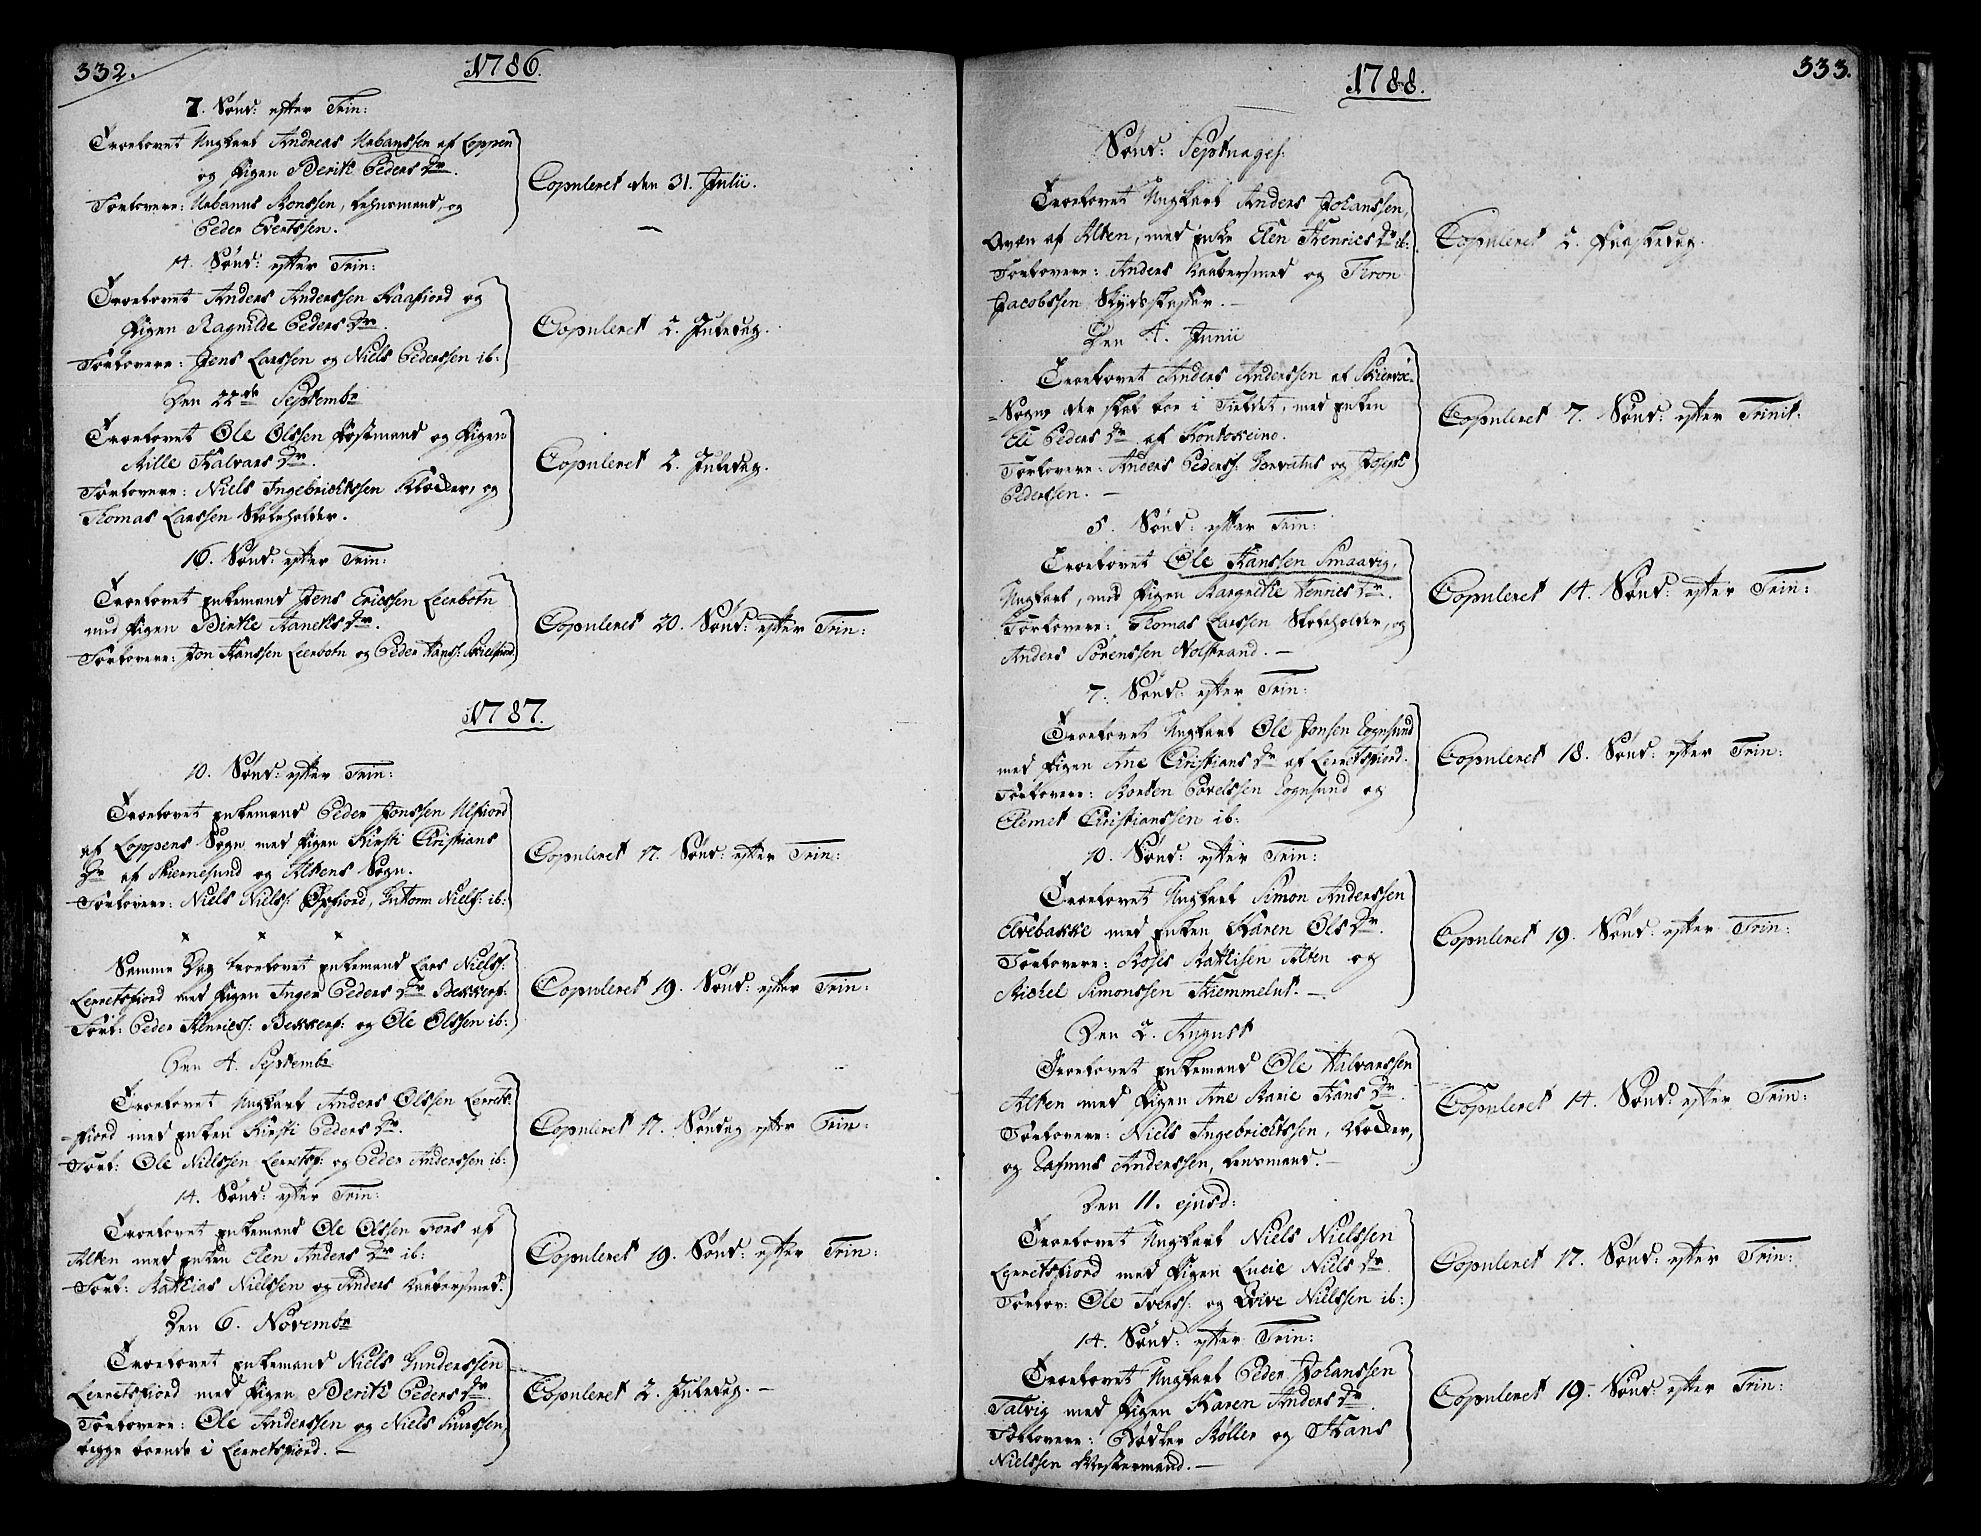 332.
1786.
7. Sönd: efter Trin:
Troelovet Ungkarl Andreas Urbanssen af Loppen
og Pigen Berith Peders Dr.
Forlovere: Urbanus Monssen, Lehnsmand, og
Peder Evertssen.
Copuleret den 31. Julii.
14. Sönd: efter Trin:
Troelovet Anders Anderssen Kaafiord og
Pigen Ragnilde Peders Dr.
Forlovere: Jens Larssen og Niels Pederssen ib:
Copuleret 2. Juledag.
Den 22de Septembr
Troelovet Ole Olssen Postmand og Pigen
Mille Halvars Dr.
Forlovere: Niels Ingebrichtssen Klocker, og
Thomas Larssen Skoleholder.
Copuleret 2. Juledag.
16. Sönd: efter Trin:
Troelovet Enkemand Jens Ericssen Leerbotn
med Pigen Birthe Daneels Dr.
Forlovere: Jon Hanssen Leerbotn og Peder Hanss: Skillefiord
Copuleret 20. Sönd: efter Trin:
1787.
10. Sönd: efter Trin:
Troelovet Enkemand Peder Jonssen Ulfiord
af Loppens Sogn med Pigen Kirsti Christians
Dr af Skiernesund og Altens Sogn.
Forlovere: Niels Nielss: Öxfiord, Guttorm Nielss: ib:
Copuleret 17. Sönd: efter Trin:
Samme Dag troelovet Enkemand Lars Nielss:
Lerretsfiord med Pigen Inger Peders Dr Bekkerf:
Forl: Peder Henricss: Bekkerf: og Ole Olssen ib:
Copuleret 19. Sönd: efter Trin:
Den 4. Septembr
Troelovet Ungkarl Anders Olssen Lerrets-
fiord med Enken Kirsti Peders Dr.
Forl: Ole Nielssen Lerretsf: og Peder Anderssen ib:
Copuleret 17. Söndag efter Trin:
14. Sönd: efter Trin:
Troelovet Enkemand Ole Olssen Fors af
Alten med Enken Elen Anders Dr ib:
Forl: Mathias Nielssen og Anders Kaabersmed.
Copuleret 19. Sönd: efter Trin:
Den 6. Novembr
Troelovet Enkemand Niels Gunderssen
Lerretsfiord med Pigen Berith Peders Dr.
Forlovere: Ole Anderssen og Niels Siurssen,
begge boende i Lerretsfiord.
Copuleret 2. Juledag.
333.
1788.
Sönd: Septuages:
Troelovet Ungkarl Anders Johanssen,
Qvæn af Alten, med Enke Elen Henrics Dr ib:
Forlovere: Anders Kaabersmed og Thron
Jacobssen Skydsskaffer.
Copuleret 2. Paaskedag.
Den 4. Junii
Troelovet Anders Anderssen af Skiervöe-
Sogn der skal boe i Fieldet, med Enken
Eli Peders Dr af Koutokeino.
Forlovere: Anders Pederss: Horvatus og Joseph
Pederssen.
Copuleret 7. Sönd: efter Trinit:
5. Sönd: efter Trin:
Troelovet Ole Hanssen Smaavig,
Ungkarl, med Pigen Margrethe Henrics Dr.
Forlovere: Thomas Larssen Skoleholder, og
Anders Sörenssen Nolstrand.
Copuleret 14. Sönd: efter Trin:
7. Sönd: efter Trin:
Troelovet Ungkarl Ole Jonsen Rognsund
med Pigen Ane Christians Dr af Lerretsfiord.
Forlovere: Morten Povelssen Rognsund og
Clemet Christianssen ib:
Copuleret 18. Sönd: efter Trin:
10. Sönd: efter Trin:
Troelovet Ungkarl Simon Anderssen
Elvebakke med Enken Karen Ols Dr.
Forlovere: Moses Mathisen Alten og
Michel Simonssen Kiemmelut.
Copuleret 19. Sönd: efter Trin:
Den 2. August
Troelovet Enkemand Ole Halvarssen
Alten med Pigen Ane Marie Hans Dr.
Forlovere: Niels Ingebrichtssen, Klocker,
og Rasmus Anderssen, Lensmand.
Copuleret 14. Sönd: efter Trin:
Den 11. ejusd:
Troelovet Ungkarl Niels Nielssen
Lerretsfiord med Pigen Lucie Niels Dr.
Forlov: Ole Iverss: og Qvive Nielssen ib:
Copuleret 17. Sönd: efter Trin:
14. Sönd: efter Trin:
Troelovet Ungkarl Peder Johanssen
Talvig med Pigen Karen Anders Dr.
Forlovere: Bödker Möller og Hans
Nielssen Mestermand.
Copuleret 19. Sönd: efter Trin: